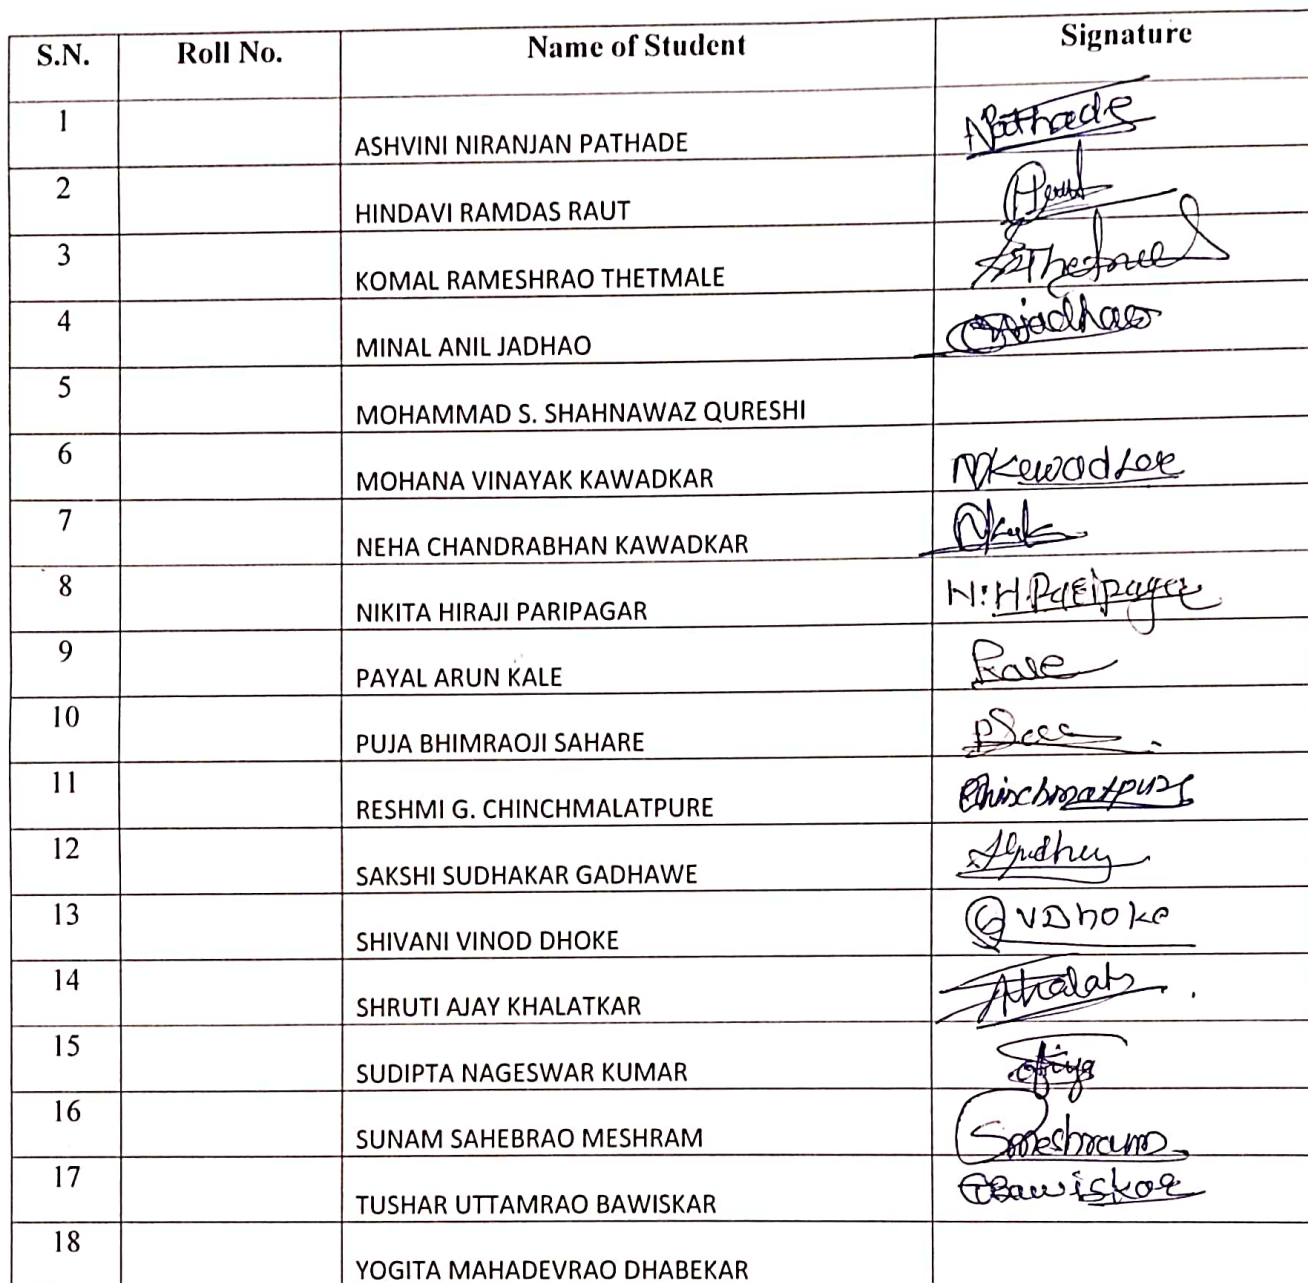 S.N. Roll No. Name of Student Signature
1 ASHVINI NIRANJAN PATHADE Npathade
2 HINDAVI RAMDAS RAUT
3 KOMAL RAMESHRAO THETMALE
4 MINAL ANIL JADHAO Jadhao
5 MOHAMMAD S. SHAHNAWAZ QURESHI
6 MOHANA VINAYAK KAWADKAR
7 NEHA CHANDRABHAN KAWADKAR
8 NIKITA HIRAJI PARIPAGAR N.H.Paripagar
9 PAYAL ARUN KALE Kale
10 PUJA BHIMRAOJI SAHARE
11 RESHMI G. CHINCHMALATPURE
12 SAKSHI SUDHAKAR GADHAWE
13 SHIVANI VINOD DHOKE SVDhoke
14 SHRUTI AJAY KHALATKAR
15 SUDIPTA NAGESWAR KUMAR
16 SUNAM SAHEBRAO MESHRAM Smeshram
17 TUSHAR UTTAMRAO BAWISKAR TBawiskar
18 YOGITA MAHADEVRAO DHABEKAR